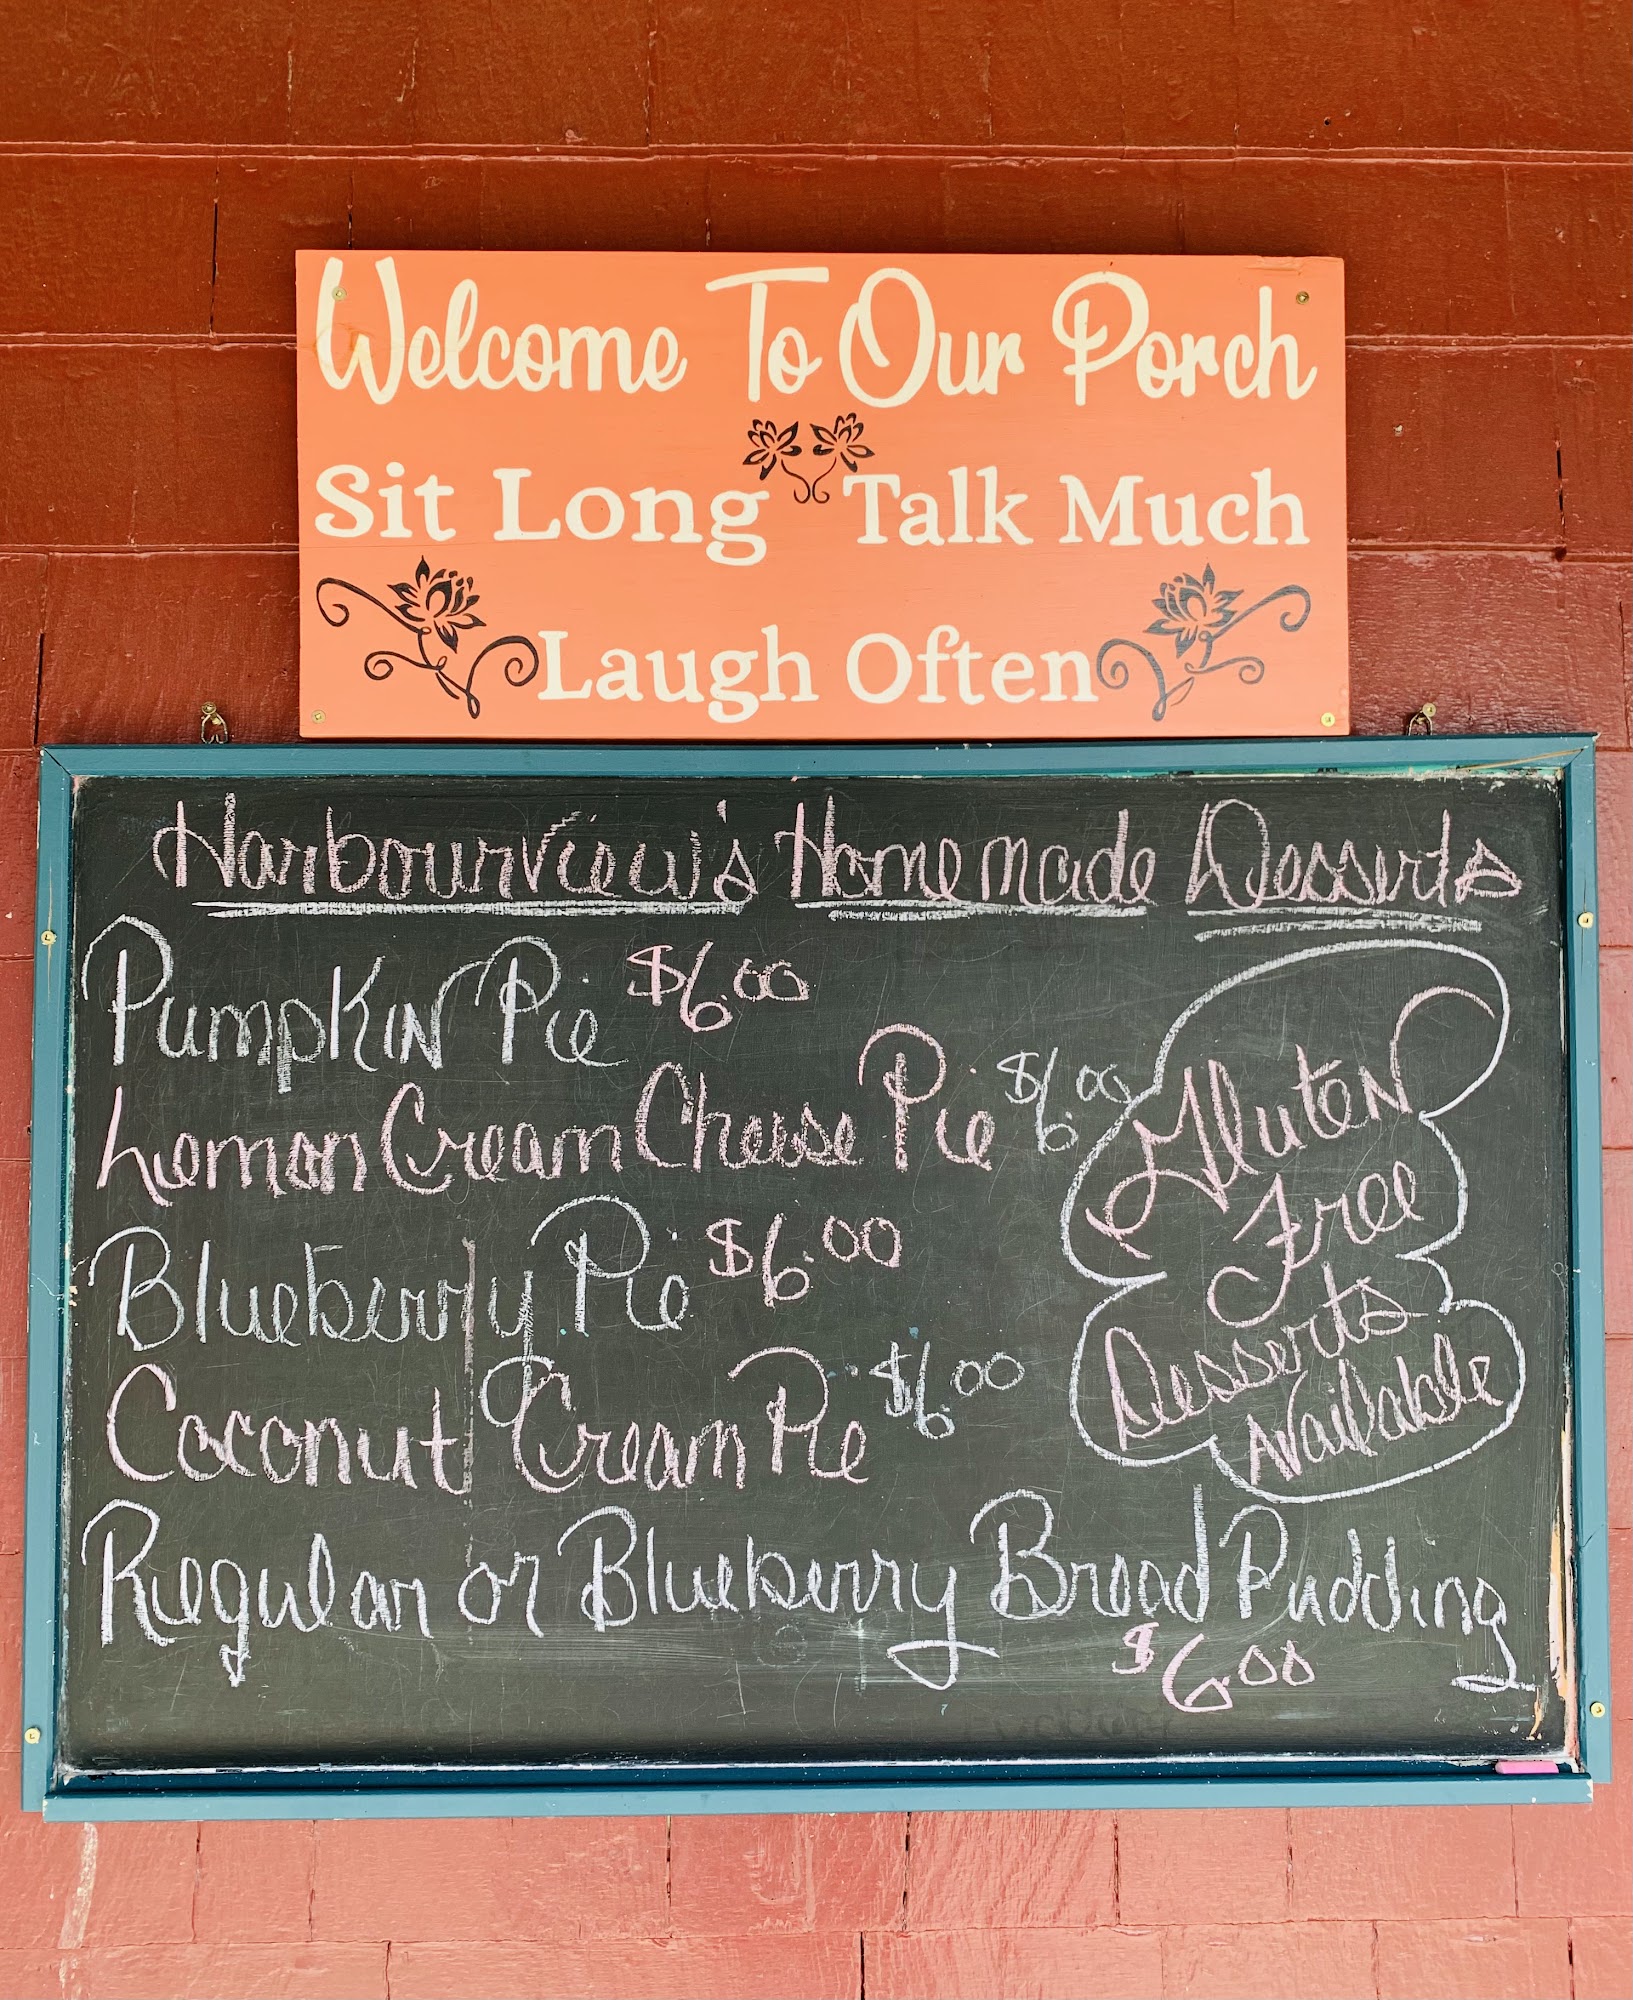 Welcome To Our Porch
Sit Long Talk Much
Laugh Often
Harbourview's Homemade Desserts
Pumpkin Pie $6.00
Lemon Cream Cheese Pie $6.00
Blueberry Pie $6.00
Coconut Cream Pie $6.00
Regular or Blueberry Bread Pudding
$6.00
Gluten
Free
Desserts
Available